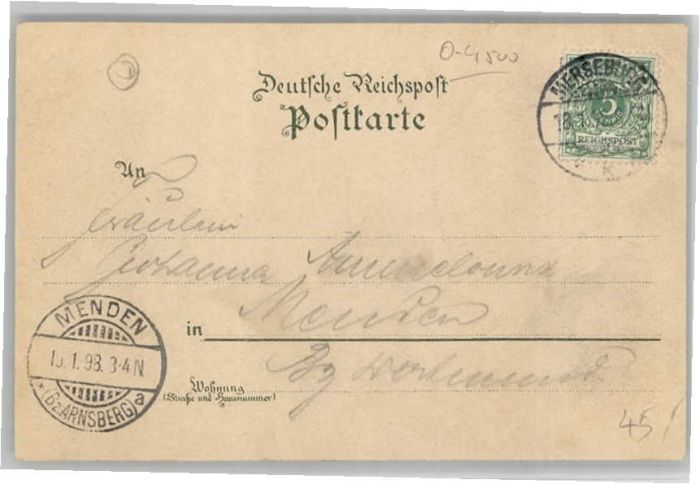 0-4500
Deutsche Reichspost
Postkarte
MERSEBURG
5
REICHSPOST
An
Fräulein
Johanna
Menden
in
Bz Dortmund
Wohnung
(Straße und Hausnummer)
MENDEN
1. 98. 3-4 N
* (Bz. ARNSBERG) a
45!